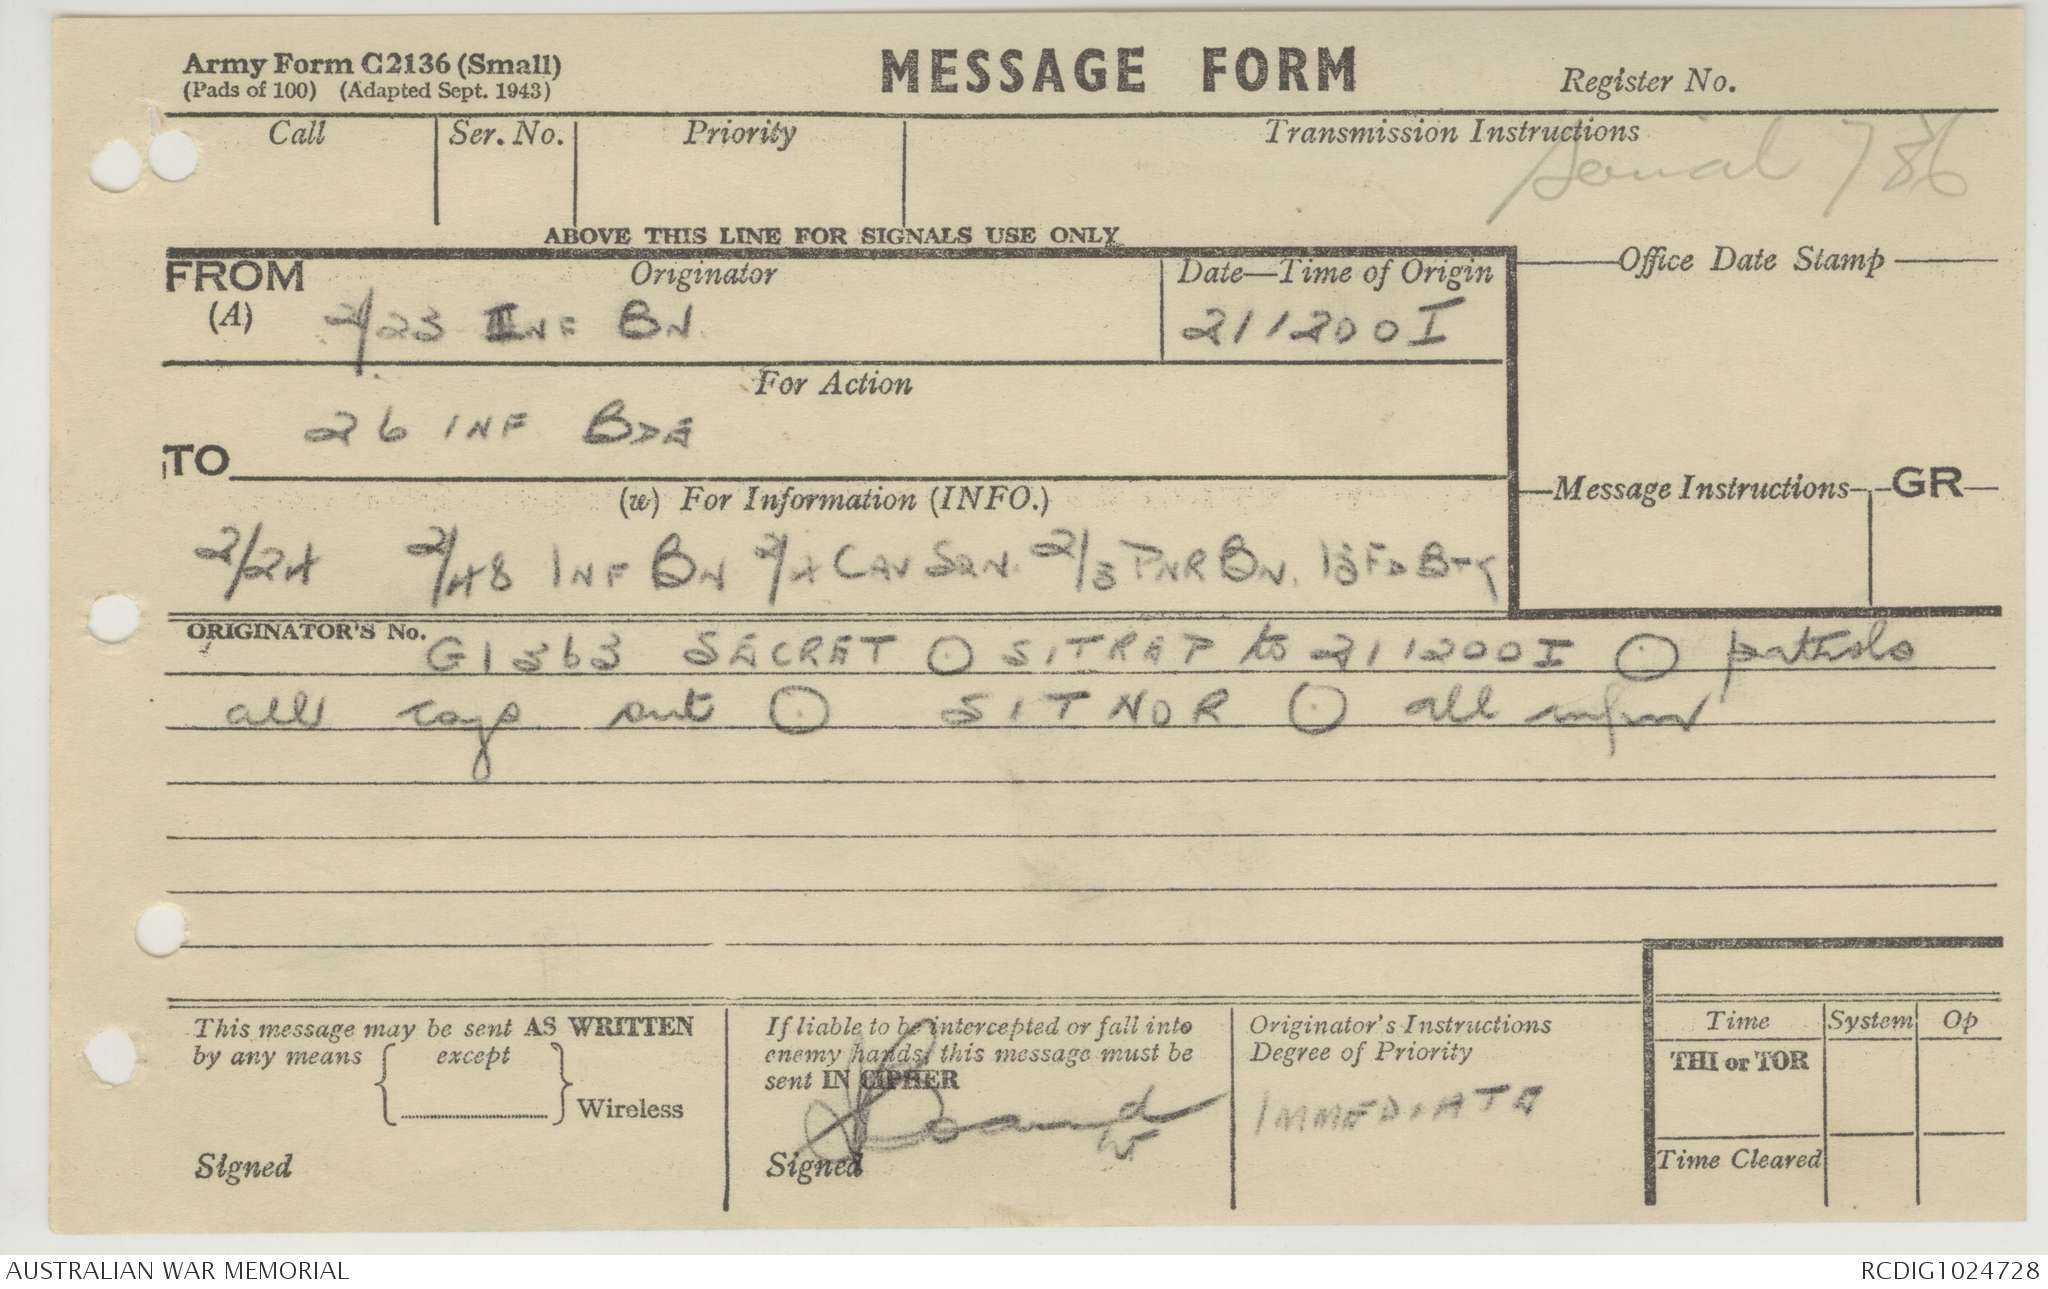 Army Form C2136 (Small)
(Pads of 100) (Adapted Sept. 1943)
MESSAGE FORM
Register No.
Call
Ser. No.
Priority
Transmission Instructions
Serial 786
ABOVE THIS LINE FOR SIGNALS USE ONLY
FROM
(A)
Originator
2/23 INF BN
Date—Time of Origin
211200I
Office Date Stamp
For Action
26 INF BDE
TO
(w) For Information (INFO.)
2/24 2/48 INF BN 2/4 CAV SQN. 2/3 PNR BN. 13 FD BTY
Message Instructions
GR
ORIGINATOR'S No.
G1363 SECRET O SITREP to 211200I O patrols
all coys out O SITNOR O all infm
This message may be sent AS WRITTEN
by any means { except }
Wireless
Signed
If liable to be intercepted or fall into
enemy hands, this message must be
sent IN CIPHER
Signed
Originator's Instructions
Degree of Priority
IMMEDIATE
Time
System
Op
THI or TOR
Time Cleared
AUSTRALIAN WAR MEMORIAL
RCDIG1024728